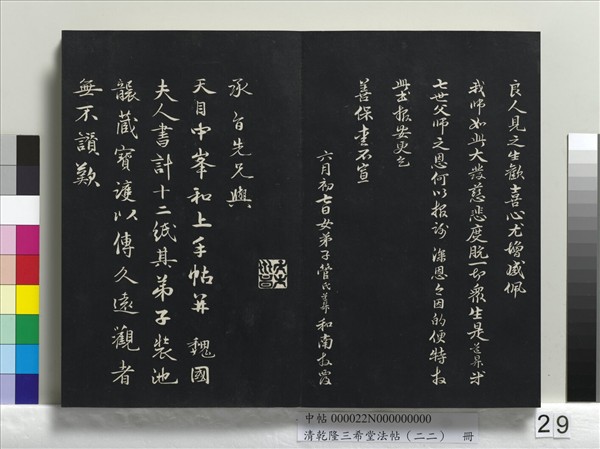 良人見之生歡喜心尤增感佩
我師如此大發慈悲度脫一切眾生是
七世父師之恩何以報謝 深恩
此拜安更乞
善保重不宣
六月初七日女弟子管氏 和南拜覆
承旨先兄與
天目中峯和上手帖并 魏國
夫人書計十二紙其弟子裝池
襲藏寶護以傳久遠觀者
無不讚歎
中帖 000022N000000000
清乾隆三希堂法帖(二二) 冊
29